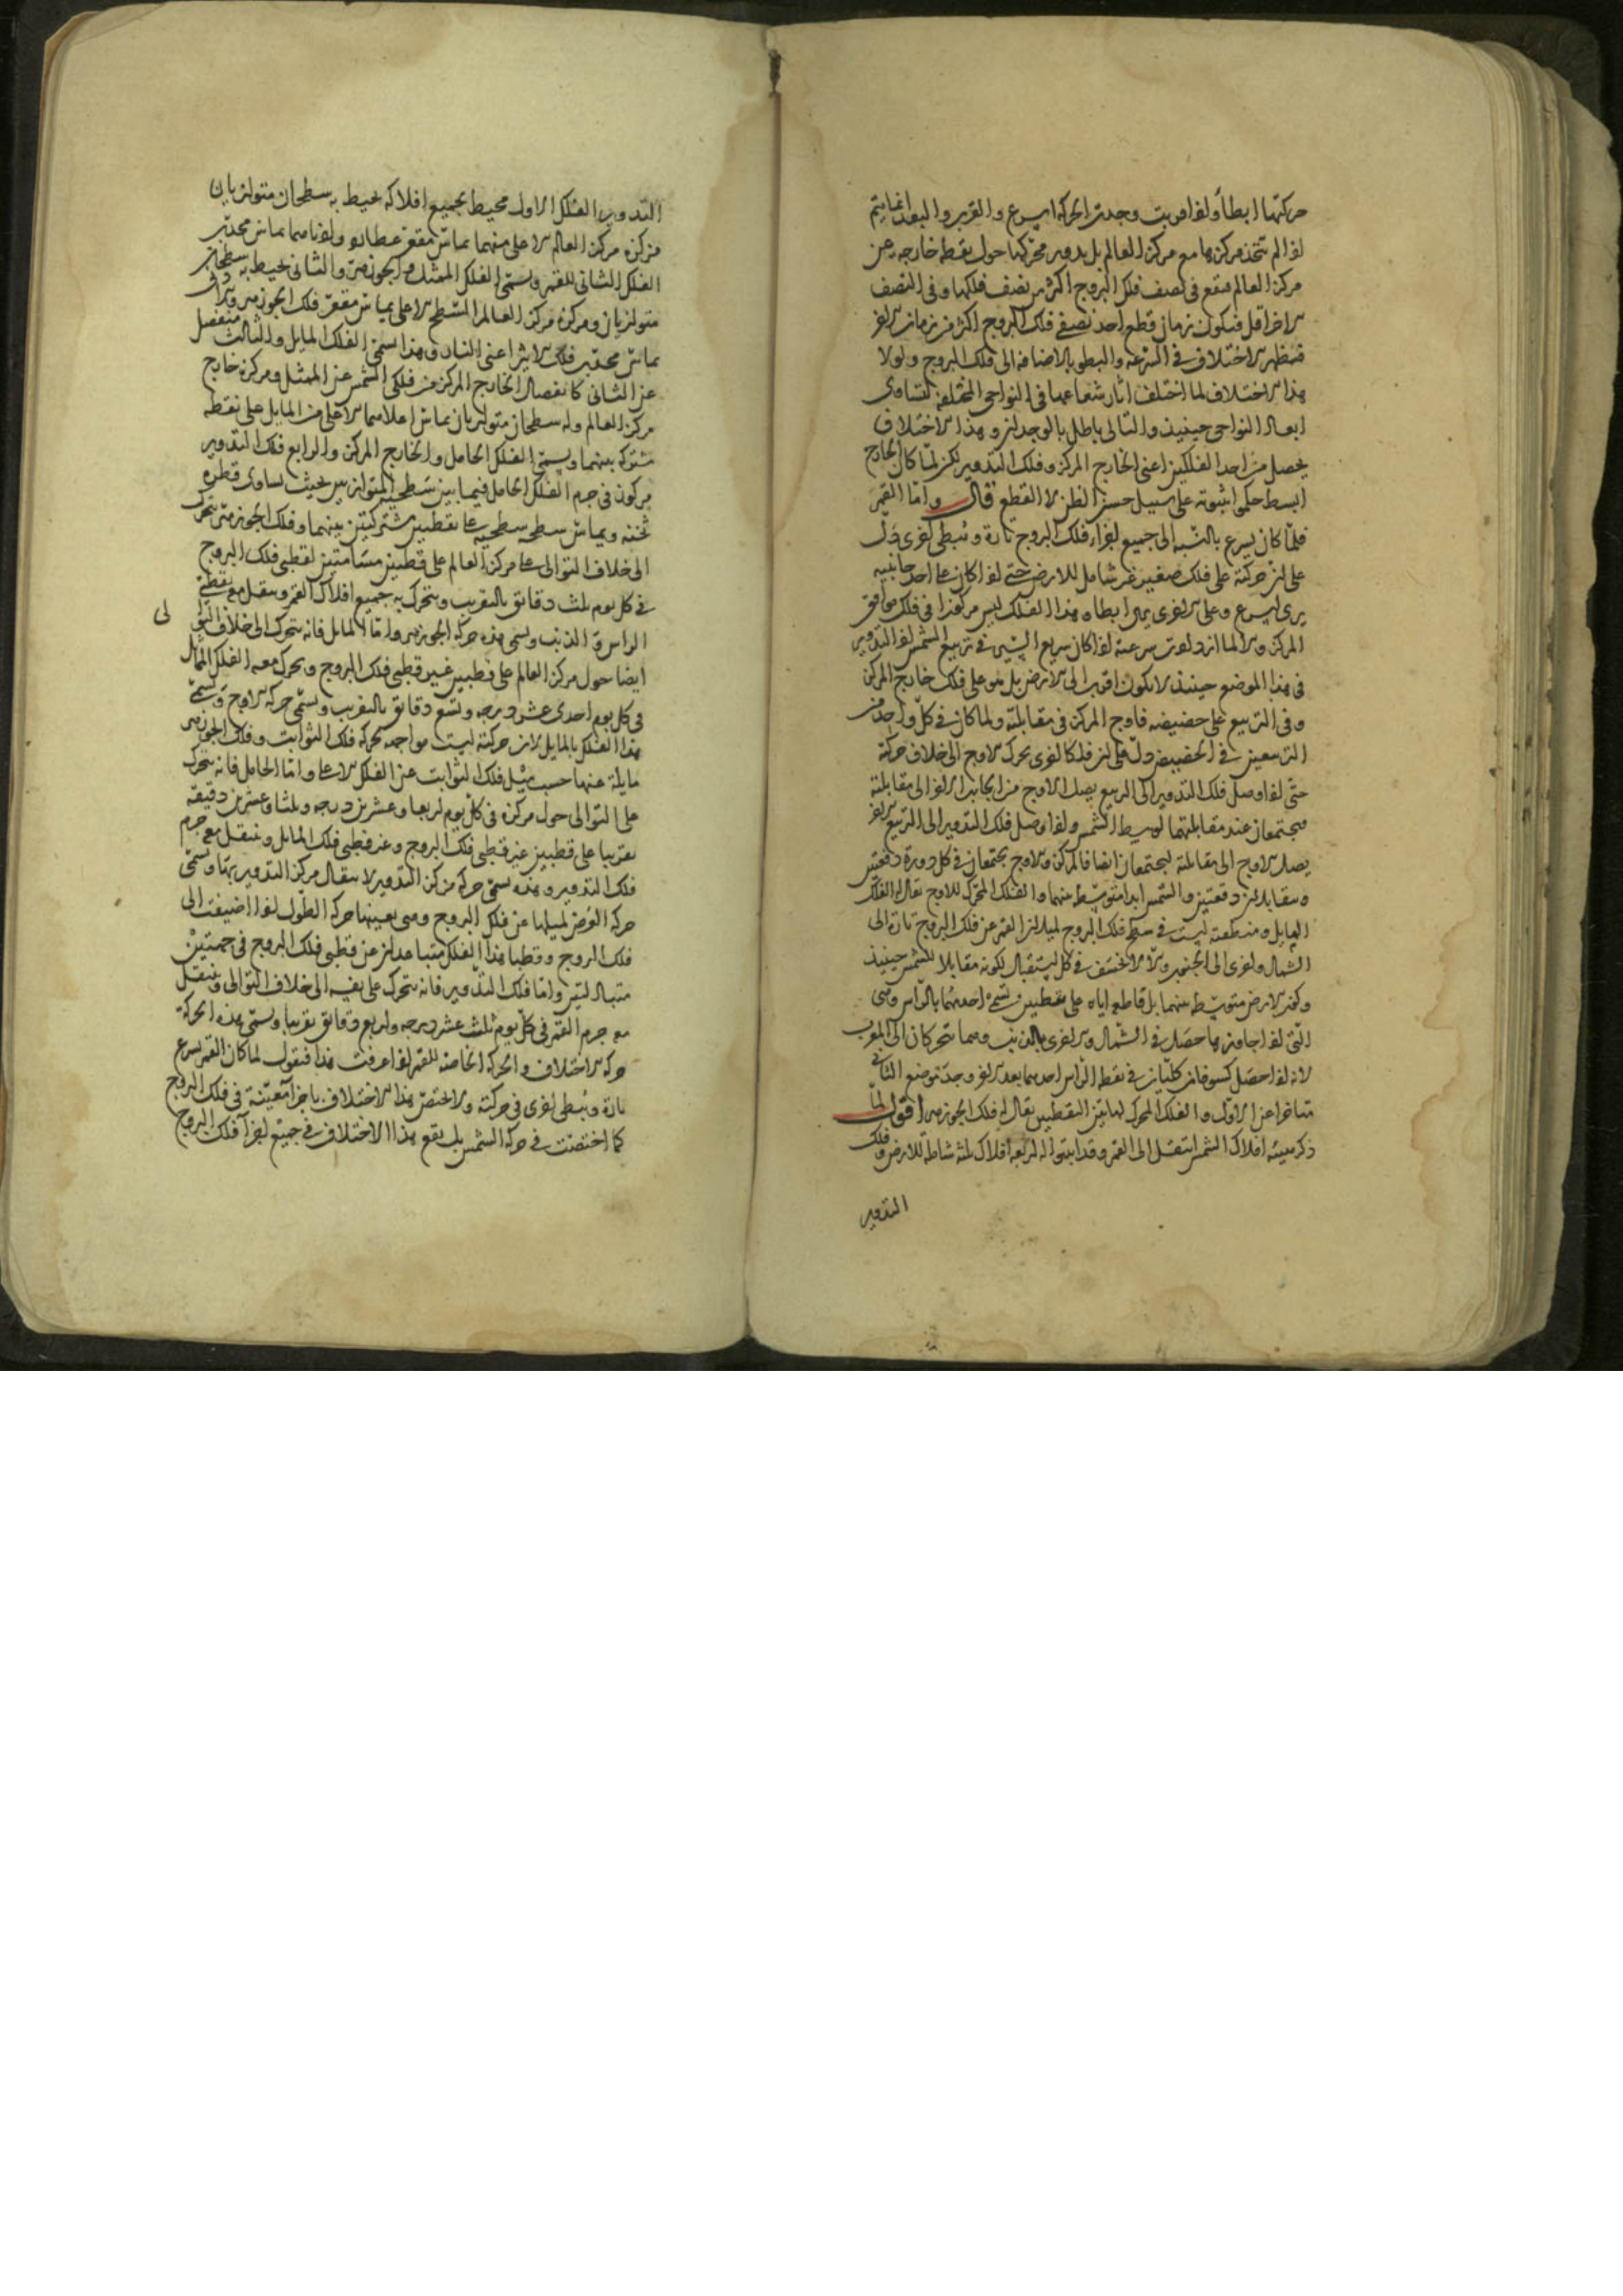 حركتها ابطأ واذا قربت وجدت الحركة اسرع والقرب والبعد انما يتم
اذا لم يتحد مركزها مع مركز العالم بل يدوير محركها حول نقطة خارجة عن
مركز العالم فيقع في نصف فلك البروج اكثر من نصف فلكها وفي النصف
الاخر اقل فيكون زمان قطع احد نصفي فلك البروج اكثر من زمان الاخر
فيظهر الاختلاف في السرعة والبطو بالاضافة الى فلك البروج ولولا
هذا الاختلاف لما اختلف اثار شعاعها في النواحي المختلفة لتساوى
ابعاد النواحي حينئذ والتالي باطل بالوجدان وهذا الاختلاف
يحصل من احد الفلكين اعنى الخارج المركز وفلك التدوير لكن لما كان الخارج
ابسط حكموا بثبوته على سبيل حسن الظن لا القطع قال واما القمر
فلما كان يسرع بالنسبة الى جميع اجزاء فلك البروج تارة ويبطى اخرى دل
على ان حركته على فلك صغير غير شامل للارض حتى اذا كان على احد جانبيه
يرى اسرع وعلى الاخرى يرى ابطا وهذا الفلك ليس مركوزا في فلك موافق
المركز والا لما ازدادت سرعته اذا كان سريع السير في تربيع الشمس اذ التدوير
في هذا الموضع حينئذ لا يكون اقرب الى الارض بل هو على فلك خارج المركز
وفي التربيع على حضيضه فاوج المركز في مقابلته ولما كان في كل واحد من
التربيعين في الحضيض دل على ان فلكا اخرى يحرك الاوج الى خلاف حركته
حتى اذا وصل فلك التدوير الى الربيع يصل الاوج من الجانب الاخر الى مقابلته
فيجتمعان عند مقابلتهما لوسط الشمس واذا وصل فلك التدوير الى التربيع الاخر
يصل الاوج الى مقابلته ليجتمعان ايضا فالمركز والاوج يجتمعان في كل دورة دفعتين
ويتقابلان دفعتين والشمس ابدا متوسطة بينهما والفلك المحرك للاوج يقال له الفلك
المايل ومنطقته ليست في سطح فلك البروج لميلان القمر عن فلك البروج تارة الى
الشمال واخرى الى الجنوب والا لانخسف في كل استقبال لكونه مقابلا للشمس حينئذ
وكون الارض متوسطة بينهما بل قاطعه اياه على نقطتين وتسمى احديهما بالراس وهي
التي اذا جاوزها حصل في الشمال والاخرى بالذنب وهما تتحركان الى المغرب
لانه اذا حصل كسوفان كليان في نقطة الراس احدهما بعد الاخر وجد موضع الثاني
متاخرا عن الاول والفلك المحرك لهاتين النقطتين يقال له فلك الجوزهر اقول لما
ذكر هيئة افلاك الشمس انتقل الى القمر وقد اثبتوا له اربعة افلاك ثلثة شاملة للارض وفلك
التدوير
التدوير الفلك الاول محيط بجميع افلاكه يحيط به سطحان متوازيان
مركزه مركز العالم الاعلى منهما يماس مقعر عطارد وادناهما يماس محدب
الفلك الثاني للقمر ويسمى الفلك الممثل والجوزهر والثاني يحيط به سطحان
متوازيان ومركزه مركز العالم السطح الاعلى يماس مقعر فلك الجوزهر والادنى
يماس محدب فلك الاثير اعنى النار وهذا يسمى الفلك المايل والثالث منفصل
عن الثاني كانفصال الخارج المركز من فلكي الشمس عن الممثل ومركزه خارج
مركز العالم وله سطحان متوازيان يماس اعلاهما الاعلى من المايل على نقطة
مشتركة بينهما ويسمى الفلك الحامل والخارج المركز والرابع فلك التدوير
مركوز في جرم الفلك الحامل فيما بين سطحيه المتوازيين بحيث يساوى قطره
ثخنه ويماس سطحه سطحيه على نقطتين مشتركتين بينهما وفلك الجوزهر يتحرك
الى خلاف التوالى على مركز العالم على قطبين مسامتين لقطبي فلك البروج
في كل يوم ثلث دقائق بالتقريب ويتحرك به جميع افلاك القمر وينتقل معه نقطتي
الراس والذنب ويسمى هذه حركة الجوزهر واما المايل فانه يتحرك الى خلاف التوالى
ايضا حول مركز العالم على قطبين غير قطبي فلك البروج ويحرك معه الفلك الحامل
في كل يوم احدى عشر درجة وتسع دقائق بالتقريب ويسمى حركة الاوج وتسمى
هذا الفلك بالمايل لان حركته ليست مواجهة لحركة فلك الثوابت وفلك الجوزهر
مايلة عنها حسب ميل فلك الثوابت عن الفلك الاعلى واما الحامل فانه يتحرك
على التوالى حول مركزه في كل يوم اربعا وعشرين درجة وثلثا وعشرين دقيقة
تقريبا على قطبين غير قطبي فلك البروج وغير قطبي فلك المايل وينتقل معه جرم
فلك التدوير وهذه تسمى حركة مركز التدوير لانتقال مركز التدوير بها ويسمى
حركة العرض لميلها عن فلك البروج وهي بعينها حركة الطول اذا اضيفت الى
فلك البروج وقطبا هذا الفلك متباعدان عن قطبي فلك البروج في جهتين
متبادلتين واما فلك التدوير فانه يتحرك على نفسه الى خلاف التوالى وينتقل
معه جرم القمر في كل يوم ثلث عشر درجة واربع دقائق تقريبا ويسمى هذه الحركة
حركة الاختلاف والحركة الخاصة للقمر اذا عرفت هذا فنقول لما كان القمر يسرع
تارة ويبطى اخرى في حركته ولا يختص هذا الاختلاف باجزا معينة في فلك البروج
كما اختصت في حركة الشمس بل يقع هذا الاختلاف في جميع اجزآ فلك البروج